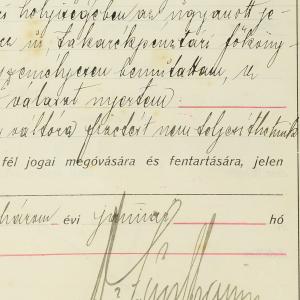 helyiségében az ugyanott je-
úr, takarékpénztári főköny-
személyesen bemutattam, s
választ nyertem
váltóra fizetést nem teljesíthetünk
fél jogai megóvására és fentartására, jelen
három évi január hó